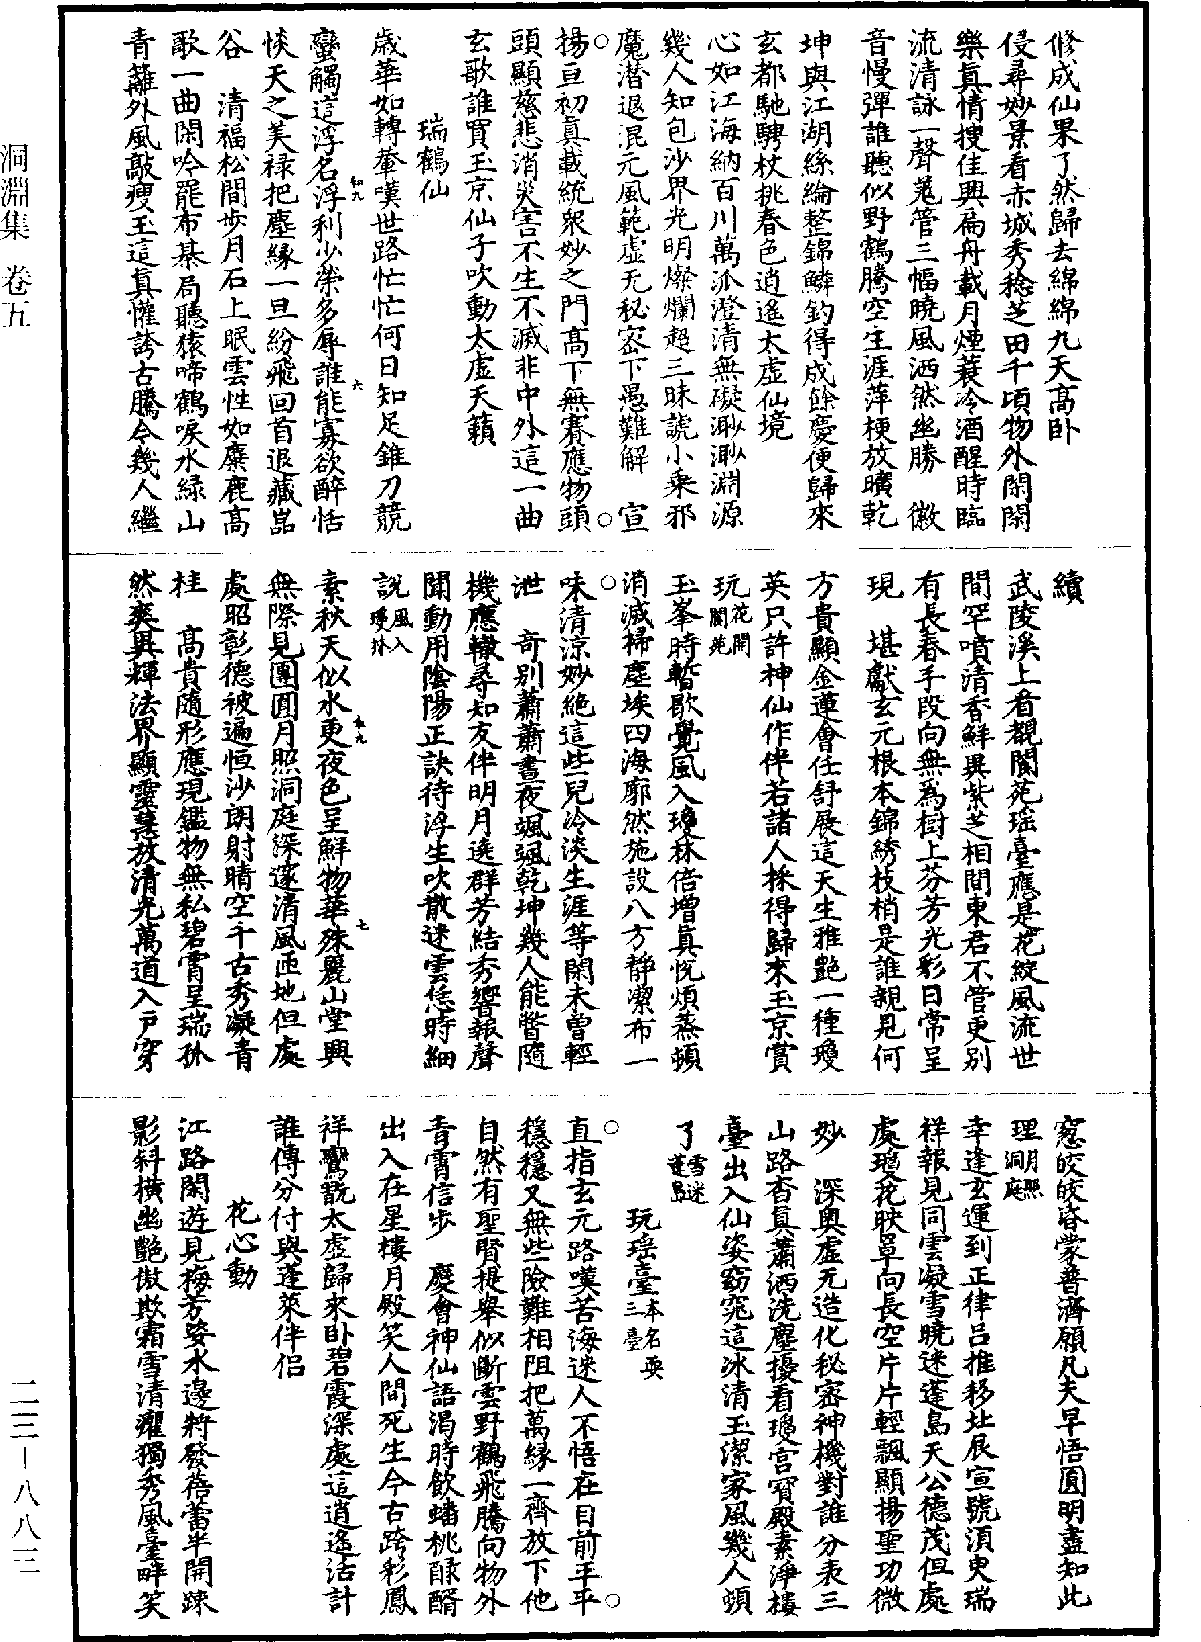 修成仙果了然歸去綿綿九天高卧
侵尋妙景看赤城秀稔芝田千頃物外閑閑
樂真情搜佳興扁舟載月煙蓑冷酒醒時臨
流清詠一聲羗管三幅曉風洒然幽勝　徽
音慢彈誰聽似野鶴騰空生涯萍梗放曠乾
坤與江湖絲綸整錦鱗釣得成餘慶便歸來
玄都馳騁杖挑春色逍遙太虛仙境
心如江海納百川萬派澄清無礙渺渺淵源
幾人知包沙界光明燦爛超三昧諕小乗邪
魔潜退混元風範虚无秘宻下愚難解　宣
揚亘初真載統衆妙之門高下無賽應物頭
頭顯慈悲消災害不生不滅非中外這一曲
玄歌誰買玉京仙子吹動太虛天籟
瑞鶴仙
歳華如轉轂嘆世路忙忙何日知足錐刀競
蠻觸這浮名浮利少榮多辱誰能寡欲醉恬
惔天之美禄把塵緣一旦紛飛回首退藏嵓
谷　清福松間步月石上眠雲性如麋鹿高
歌一曲閑吟罷布棊局聽猿啼鶴唳水緑山
青籬外風敲瘦玉這真懽誇古騰今幾人繼
和九
六
續
武陵溪上看覩閬苑瑤臺應是花綻風流世
間罕噴清香鮮異紫芝相間東君不管更別
有長春手段向無為樹上芬芳光彩日常呈
現　堪獻玄元根本錦綉枝梢是誰親見何
方貴顯金蓮會任舒展這天生雅艷一種瓊
英只許神仙作伴若諸人採得歸來玉京賞
玩花開閬苑
玉峯時暫歇覺風入瓊林倍增真恱煩蒸頓
消滅掃塵埃四海廓然施設八方靜潔布一
味清凉妙絶這些兒冷淡生涯等閑未曾輕
泄　奇別蕭蕭晝夜颯颯乾坤幾人能瞥隨
機應轍尋知友伴明月遶群芳結秀響報聲
聞動用陰陽正訣待浮生吹散迷雲恁時細
説風入瓊林
素秋天似水更夜色呈鮮物華殊麗山堂興
無際見團圓月照洞庭深邃清風匝地但處
處昭彰德被遍恒沙朗射晴空千古秀凝青
桂　高貴隨形應現鑑物無私碧霄呈瑞孤
然爽異輝法界顯靈慧放清光萬道入戸穿
和九
七
窓皎皎容蒙普濟願凡夫早悟圓明盡知此
理月照洞庭
幸逢玄運到正律呂推移北辰宣號湏臾瑞
祥報見同雲凝雪曉迷蓬島天公德茂但處
處瓊花映罩向長空片片輕飄顯揚聖功微
妙　深奥虛无造化秘密神機對誰分表三
山路杳真蕭洒洗塵擾看瓊宫寳殿素淨樓
臺出入仙姿窈窕這冰清玉潔家風幾人頓
了雪迷蓬島
玩瑤臺本名耍三臺
直指玄元路嘆苦海迷人不悟在目前平平
穩穩又無些險難相阻把萬緣一齊放下他
自然有聖賢提舉似斷雲野鶴飛騰向物外
青霄信步　慶會神仙語渴時飲蟠桃醁醑
出入在星樓月殿笑人間死生今古跨彩鳳
祥鸞翫太虛歸來卧碧霞深處這逍遙活計
誰傳分付與蓬萊伴侣
花心動
江路閑遊見梅芳姿水邊將發蓓蕾半開疎
影斜横幽艷傲欺霜雪清癯獨秀風臺畔笑
洞淵集　卷五
二三—八八三